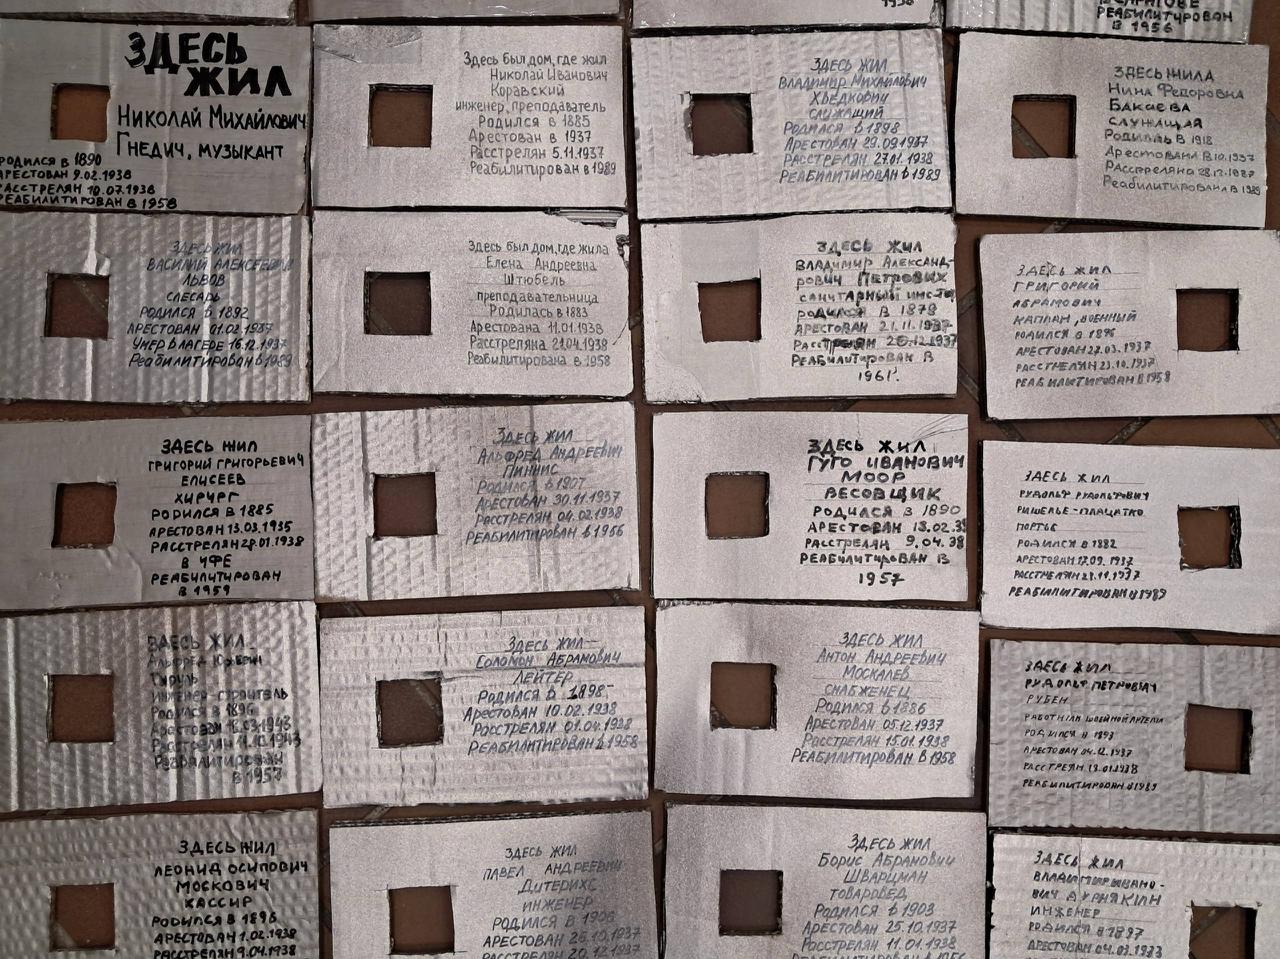 1938
РЕАБИЛИТИРОВАН
В 1956
ЗДЕСЬ
ЖИЛ
НИКОЛАЙ МИХАЙЛОВИЧ
ГНЕДИЧ, МУЗЫКАНТ
РОДИЛСЯ В 1890
АРЕСТОВАН 9.02.1938
РАССТРЕЛЯН 10.07.1938
РЕАБИЛИТИРОВАН В 1958
Здесь был дом, где жил
Николай Иванович
Коравский
инженер, преподаватель
Родился в 1885
Арестован в 1937
Расстрелян 5.11.1937
Реабилитирован в 1989
ЗДЕСЬ ЖИЛ
ВЛАДИМИР МИХАЙЛОВИЧ
ХЬЕДКОВИЧ
СЛУЖАЩИЙ
РОДИЛСЯ В 1898
АРЕСТОВАН 29.09.1937
РАССТРЕЛЯН 27.01.1938
РЕАБИЛИТИРОВАН В 1989
ЗДЕСЬ ЖИЛА
Нина Федоровна
Бакаева
СЛУЖАЩАЯ
Родилась в 1918
Арестована в 10.1937
Расстреляна 28.12.1937
Реабилитирована в 1989
ЗДЕСЬ ЖИЛ
ВАСИЛИЙ АЛЕКСЕЕВИЧ
ЛЬВОВ
СЛЕСАРЬ
РОДИЛСЯ В 1892
АРЕСТОВАН 01.02.1937
УМЕР В ЛАГЕРЕ 16.12.1937
Реабилитирован в 1989
Здесь был дом, где жила
Елена Андреевна
Штюбель
преподавательница
Родилась в 1883
Арестована 11.01.1938
Расстреляна 21.04.1938
Реабилитирована в 1958
ЗДЕСЬ ЖИЛ
ВЛАДИМИР АЛЕКСАНД-
РОВИЧ ПЕТРОВИХ
САНИТАРНЫЙ ИНС-ТОР
РОДИЛСЯ В 1879
АРЕСТОВАН 21.11.1937
РАССТРЕЛЯН 20.12.1937
РЕАБИЛИТИРОВАН В
1961г.
ЗДЕСЬ ЖИЛ
ГРИГОРИЙ
АБРАМОВИЧ
КАПЛАН, ВОЕННЫЙ
РОДИЛСЯ В 1896
АРЕСТОВАН 27.03.1937
РАССТРЕЛЯН 23.10.1937
РЕАБИЛИТИРОВАН В 1958
ЗДЕСЬ ЖИЛ
ГРИГОРИЙ ГРИГОРЬЕВИЧ
ЕЛИСЕЕВ
ХИРУРГ
РОДИЛСЯ В 1885
АРЕСТОВАН 13.03.1935
РАССТРЕЛЯН 28.01.1938
В УФЕ
РЕАБИЛИТИРОВАН
В 1959
ЗДЕСЬ ЖИЛ
АЛЬФРЕД АНДРЕЕВИЧ
ПИННИС
РОДИЛСЯ В 1907
АРЕСТОВАН 30.11.1937
РАССТРЕЛЯН 04.02.1938
РЕАБИЛИТИРОВАН В 1966
ЗДЕСЬ ЖИЛ
ГУГО ИВАНОВИЧ
МООР
ВЕСОВЩИК
РОДИЛСЯ В 1890
АРЕСТОВАН 13.02.38
РАССТРЕЛЯН 9.04.38
РЕАБИЛИТИРОВАН В
1957
ЗДЕСЬ ЖИЛ
РУДОЛЬФ РУДОЛЬФОВИЧ
РИШЕЛЬЕ-ПЛАЦАТКО
ПОРТЬЕ
РОДИЛСЯ В 1882
АРЕСТОВАН 17.09.1937
РАССТРЕЛЯН 21.11.1937
РЕАБИЛИТИРОВАН В 1989
ЗДЕСЬ ЖИЛ
Альфред Юрьевич
Тируль
инженер-строитель
Родился в 1896
Арестован 16.03.1943
Расстрелян 11.10.1943
Реабилитирован
в 1957
ЗДЕСЬ ЖИЛ
СОЛОМОН АБРАМОВИЧ
ЛЕЙТЕР
РОДИЛСЯ В 1898
АРЕСТОВАН 10.02.1938
РАССТРЕЛЯН 01.04.1938
РЕАБИЛИТИРОВАН В 1958
ЗДЕСЬ ЖИЛ
АНТОН АНДРЕЕВИЧ
МОСКАЛЕВ
СНАБЖЕНЕЦ
РОДИЛСЯ В 1886
АРЕСТОВАН 05.12.1937
РАССТРЕЛЯН 15.01.1938
РЕАБИЛИТИРОВАН В 1958
ЗДЕСЬ ЖИЛ
РУДОЛЬФ ПЕТРОВИЧ
РУБЕН
РАБОТНИК ШВЕЙНОЙ АРТЕЛИ
РОДИЛСЯ В 1893
АРЕСТОВАН 04.12.1937
РАССТРЕЛЯН 13.01.1938
РЕАБИЛИТИРОВАН В 1989
ЗДЕСЬ ЖИЛ
ЛЕОНИД ОСИПОВИЧ
МОСКОВИЧ
КАССИР
РОДИЛСЯ В 1896
АРЕСТОВАН 1.02.1938
РАССТРЕЛЯН 9.04.1938
ЗДЕСЬ ЖИЛ
ПАВЕЛ АНДРЕЕВИЧ
ДИТЕРИХС
ИНЖЕНЕР
РОДИЛСЯ В 1906
АРЕСТОВАН 26.10.1937
РАССТРЕЛЯН 20.12.1937
ЗДЕСЬ ЖИЛ
БОРИС АБРАМОВИЧ
ШВАРЦМАН
ТОВАРОВЕД
РОДИЛСЯ В 1903
АРЕСТОВАН 25.10.1937
РАССТРЕЛЯН 11.01.1938
ЗДЕСЬ ЖИЛ
ВЛАДИМИР ИВАНО-
ВИЧ ДУРНЯКИН
ИНЖЕНЕР
РОДИЛСЯ В 1897
АРЕСТОВАН 04.03.1933